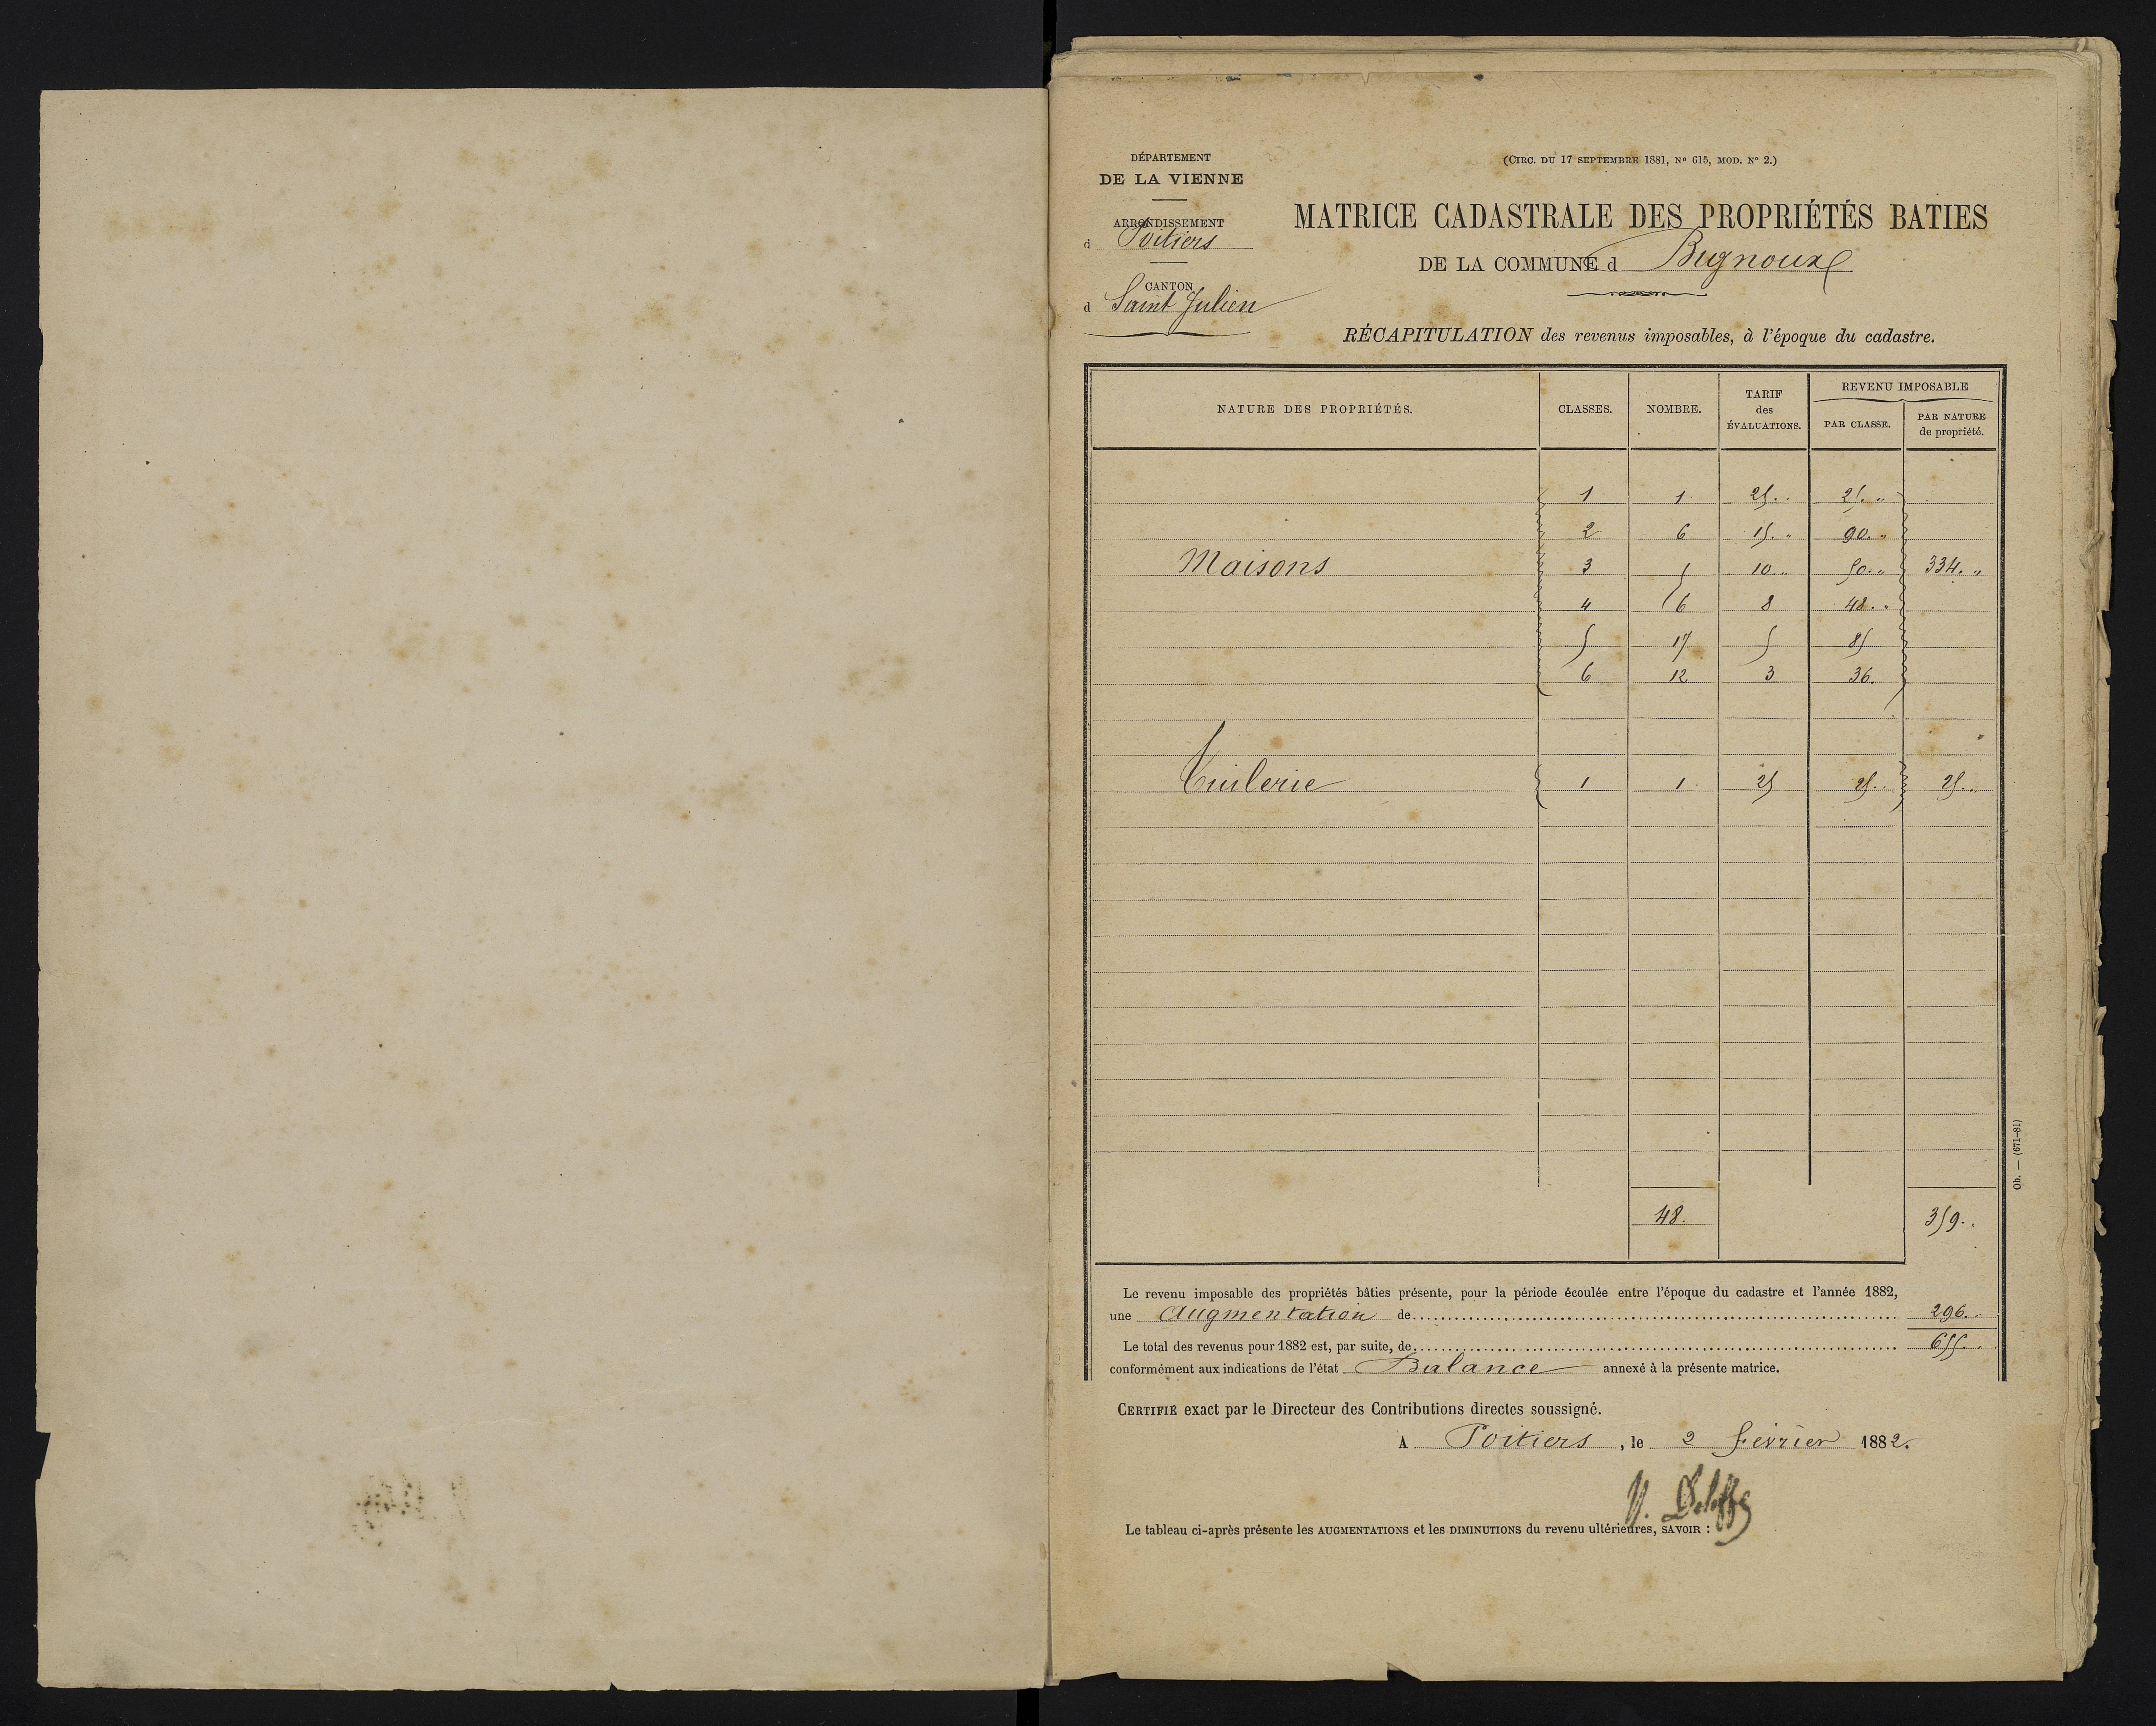 DÉPARTEMENT
DE LA VIENNE
ARRONDISSEMENT
d Poitiers
CANTON
d Saint Julien
(CIRC. DU 17 SEPTEMBRE 1881, Nº 615, MOD. Nº 2.)
MATRICE CADASTRALE DES PROPRIÉTÉS BATIES
DE LA COMMUNE d Bignoux
RÉCAPITULATION des revenus imposables, à l'époque du cadastre.
NATURE DES PROPRIÉTÉS. CLASSES. NOMBRE. TARIF des ÉVALUATIONS. REVENU IMPOSABLE PAR CLASSE. PAR NATURE de propriété.
1 1 25. . 25. "
2 6 15. " 90. "
Maisons 3 5 10. " 50. " 334. "
4 6 8 48. "
5 17 5 85
6 12 3 36.
Tuilerie 1 1 25 25. . 25. .
48. 359. .
Le revenu imposable des propriétés bâties présente, pour la période écoulée entre l'époque du cadastre et l'année 1882,
une Augmentation de 296. .
Le total des revenus pour 1882 est, par suite, de 655. .
conformément aux indications de l'état Balance annexé à la présente matrice.
CERTIFIÉ exact par le Directeur des Contributions directes soussigné.
A Poitiers, le 2 février 1882.
Le tableau ci-après présente les AUGMENTATIONS et les DIMINUTIONS du revenu ultérieures, SAVOIR :
Ob. — (671-81)